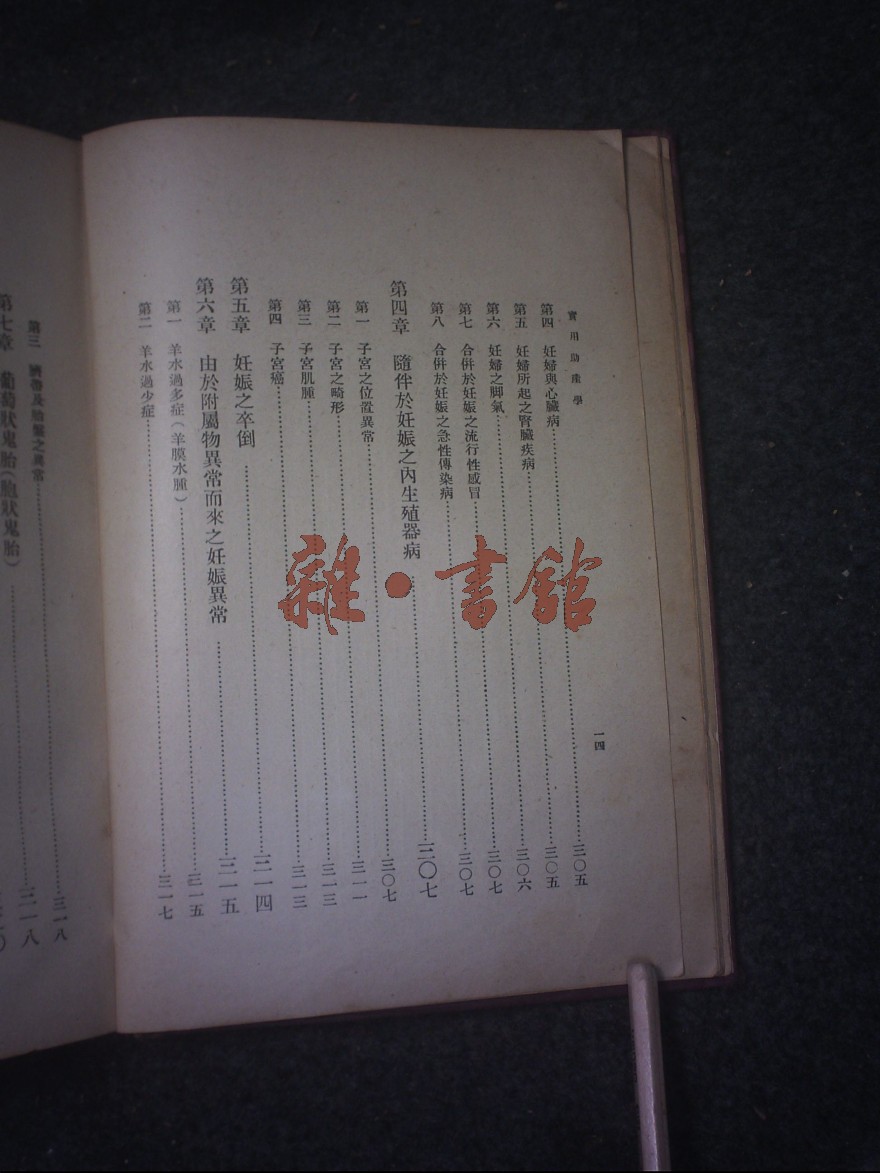 實用助產學
一四
第四 妊婦與心臟病……三〇五
第五 妊婦所起之腎臟疾病……三〇五
第六 妊婦之脚氣……三〇六
第七 合併於妊娠之流行性感冒……三〇七
第八 合併於妊娠之急性傳染病……三〇七
第四章 隨伴於妊娠之內生殖器病……三〇七
第一 子宮之位置異常……三〇七
第二 子宮之畸形……三一一
第三 子宮肌腫……三一三
第四 子宮癌……三一三
第五章 妊娠之卒倒……三一四
第六章 由於附屬物異常而來之妊娠異常……三一五
第一 羊水過多症(羊膜水腫)……三一五
第二 羊水過少症……三一七
第三 臍帶及胎盤之異常……三一八
第七章 葡萄狀鬼胎(胞狀鬼胎)……三一八
雜·書館